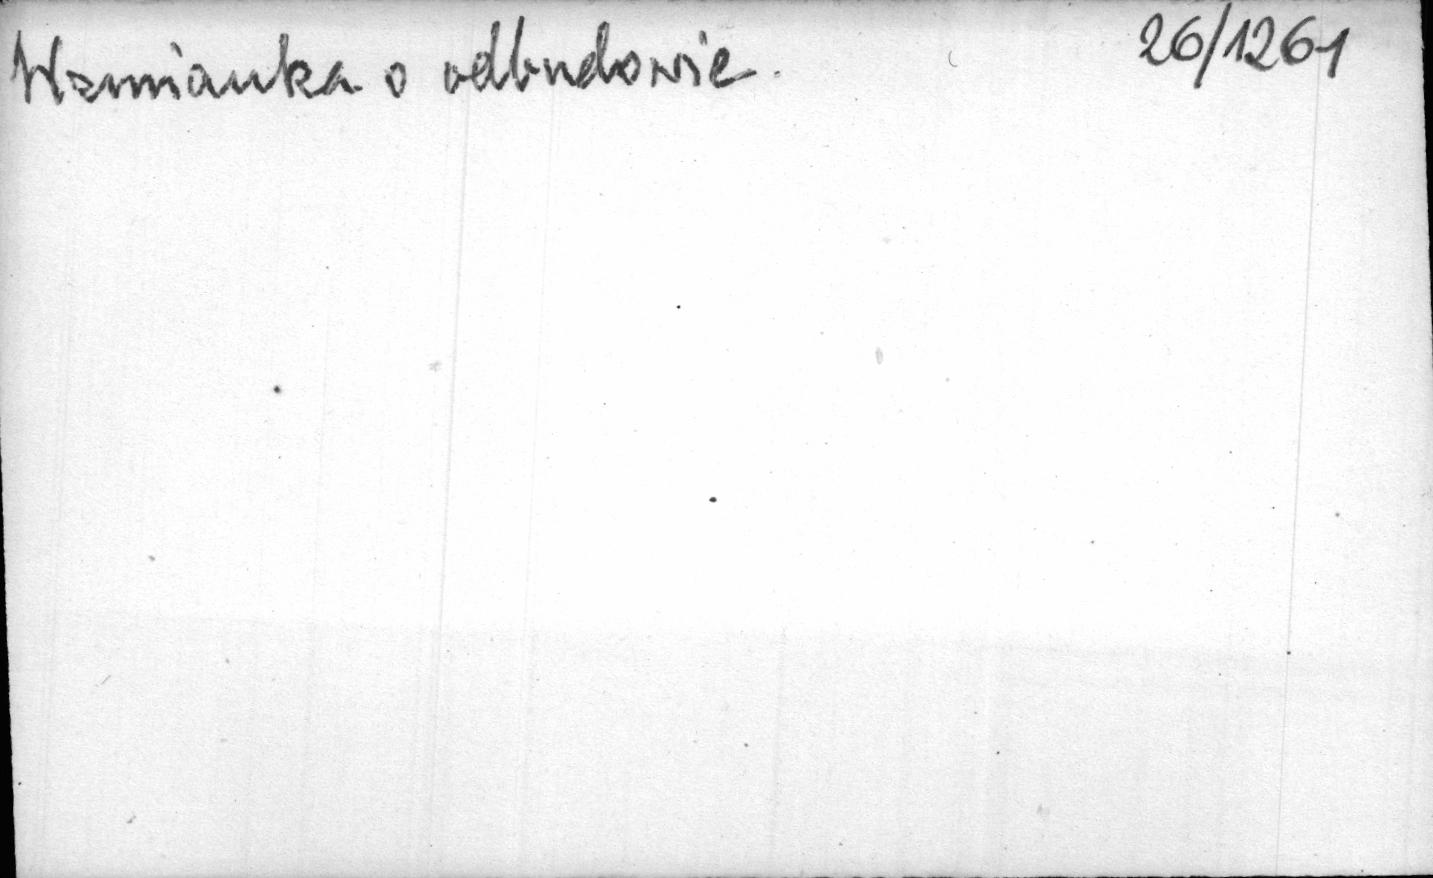 Wzmianka o odbudowie.
26/1261